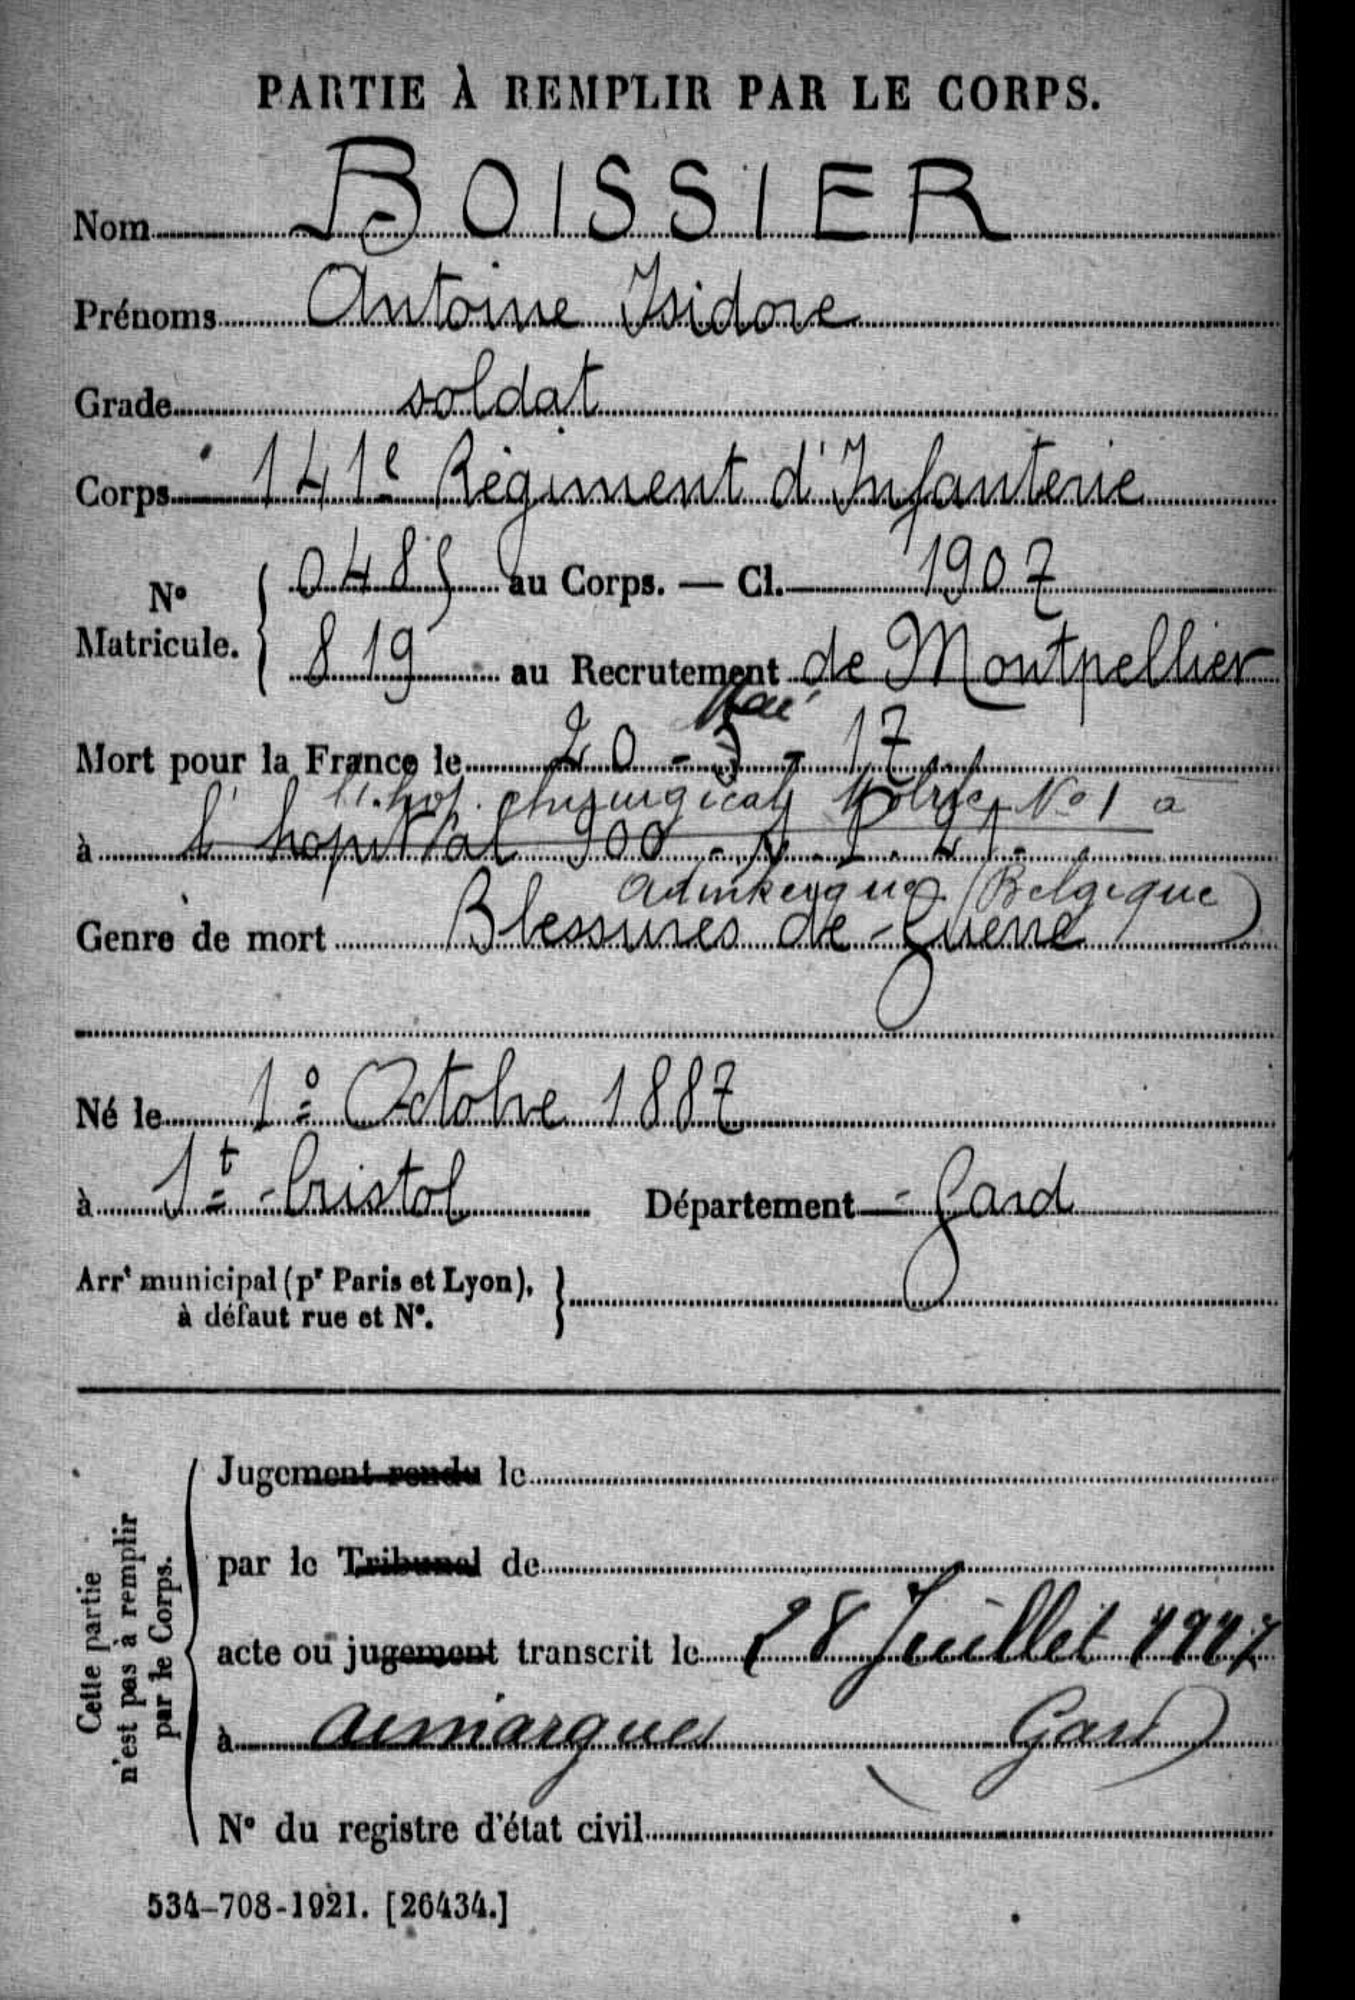 PARTIE À REMPLIR PAR LE CORPS.
Nom BOISSIER
Prénoms Antoine Isidore
Grade soldat
Corps 141e Régiment d'Infanterie
N° Matricule. 0485 au Corps. — Cl. 1907
819 au Recrutement de Montpellier
Mai
Mort pour la France le 20 - 5 - 17
l'hop. chirurgical Mobile No 1 a
à l'hopital 900 - S. P. 41.
Adinkerque (Belgique)
Genre de mort Blessures de Guerre
Né le 1° Octobre 1887
à St Cristol Département Gard
Arrt municipal (pr Paris et Lyon),
à défaut rue et N°.
Cette partie
n'est pas à remplir
par le Corps.
Jugement rendu le
par le Tribunal de
acte ou jugement transcrit le 28 Juillet 1917
à Aimargues (Gard)
N° du registre d'état civil
534-708-1921. [26434.]